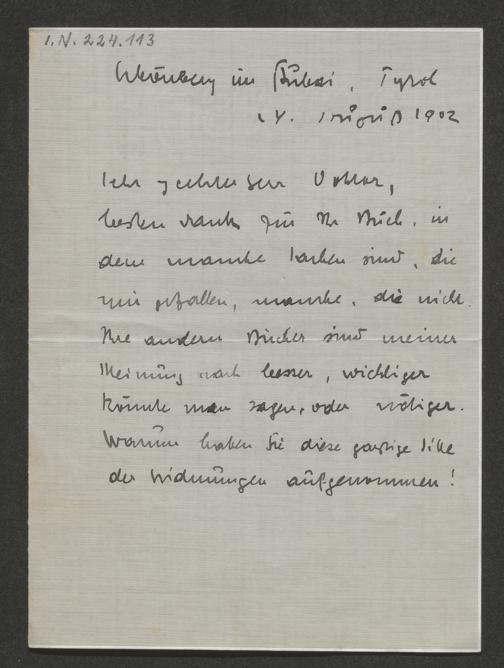 I.N. 224.113
Schönberg im Stubai, Tyrol
14. August 1902
Sehr geehrter Herr Doktor,
besten Dank für Ihr Buch, in
dem manche Sachen sind, die
mir gefallen, manche, die nicht.
Ihre anderen Bücher sind meiner
Meinung nach besser, wichtiger
könnte man sagen, oder nötiger.
Warum haben Sie diese garstige Sitte
der Widmungen aufgenommen!